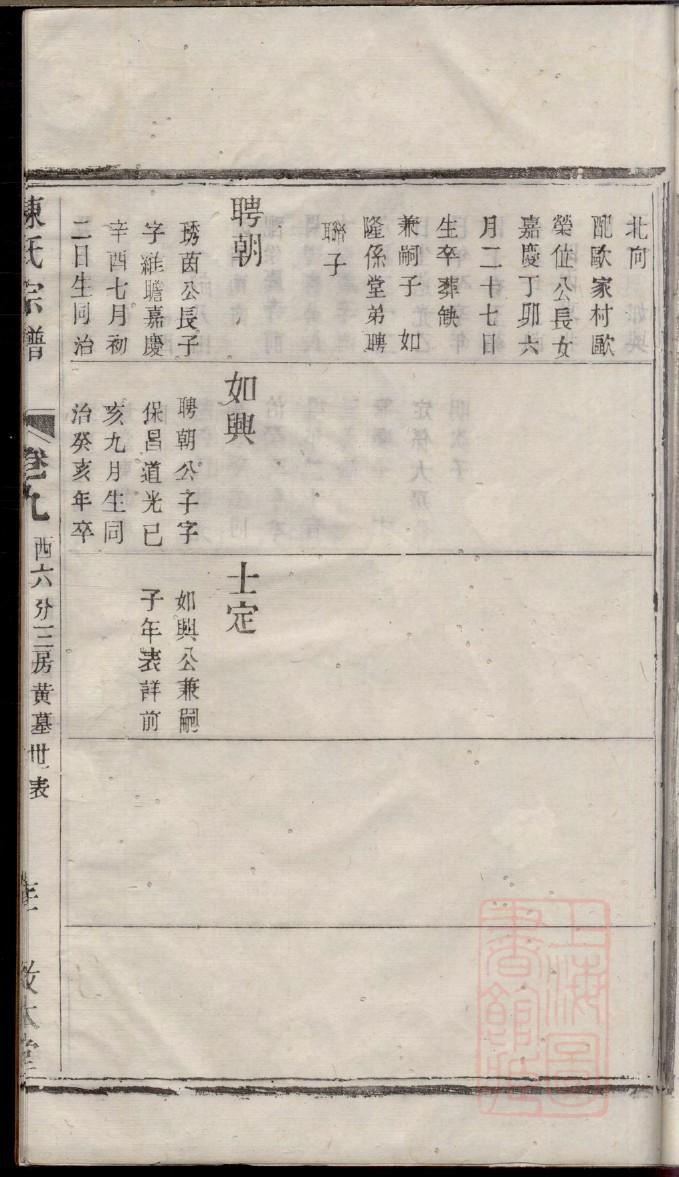 北向
配歐家村歐
榮位公長女
嘉慶丁卯六
月二十七日
生卒葬缺
兼嗣子 如
隆係堂弟聘
聯子
聘朝
琇茵公長子
字維瞻嘉慶
辛酉七月初
二日生同治
如興
聘朝公子字
保昌道光已
亥九月生同
治癸亥年卒
士定
如興公兼嗣
子年表詳前
陳氏宗譜
卷九
西六分三房黃墓世表
敬本堂
上海圖書館藏